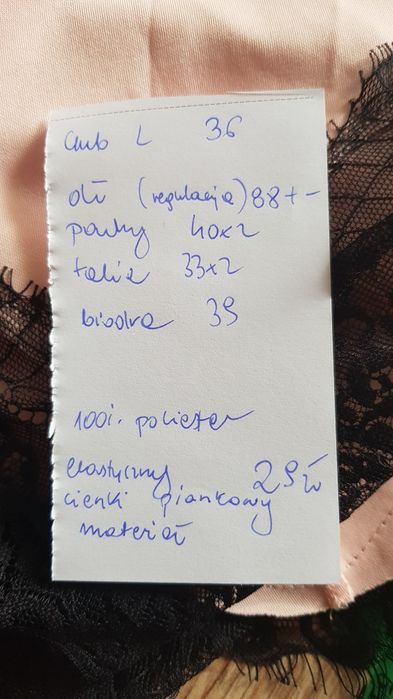 club L 36
dł (regulacja) 88+-
pachy 40x2
talia 33x2
biodra 39
100%. poliester
elastyczny 29zł
cienki piankowy
materiał